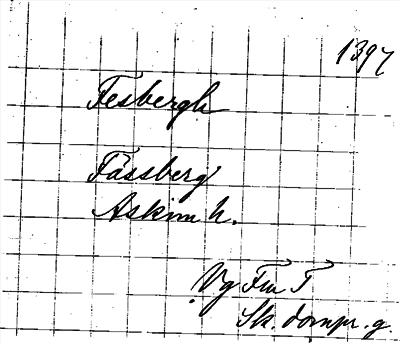 1397
Fesbergh
Fässberg
Askim h.
Vg Fru T
Sk. dompr. g.